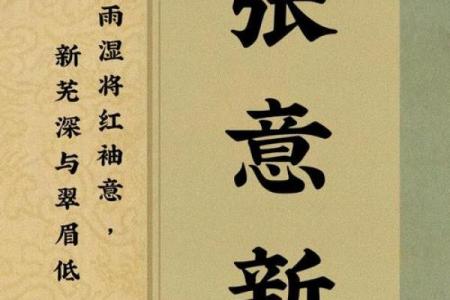 张意新
雨湿将红袖意，
新芜深与翠眉低